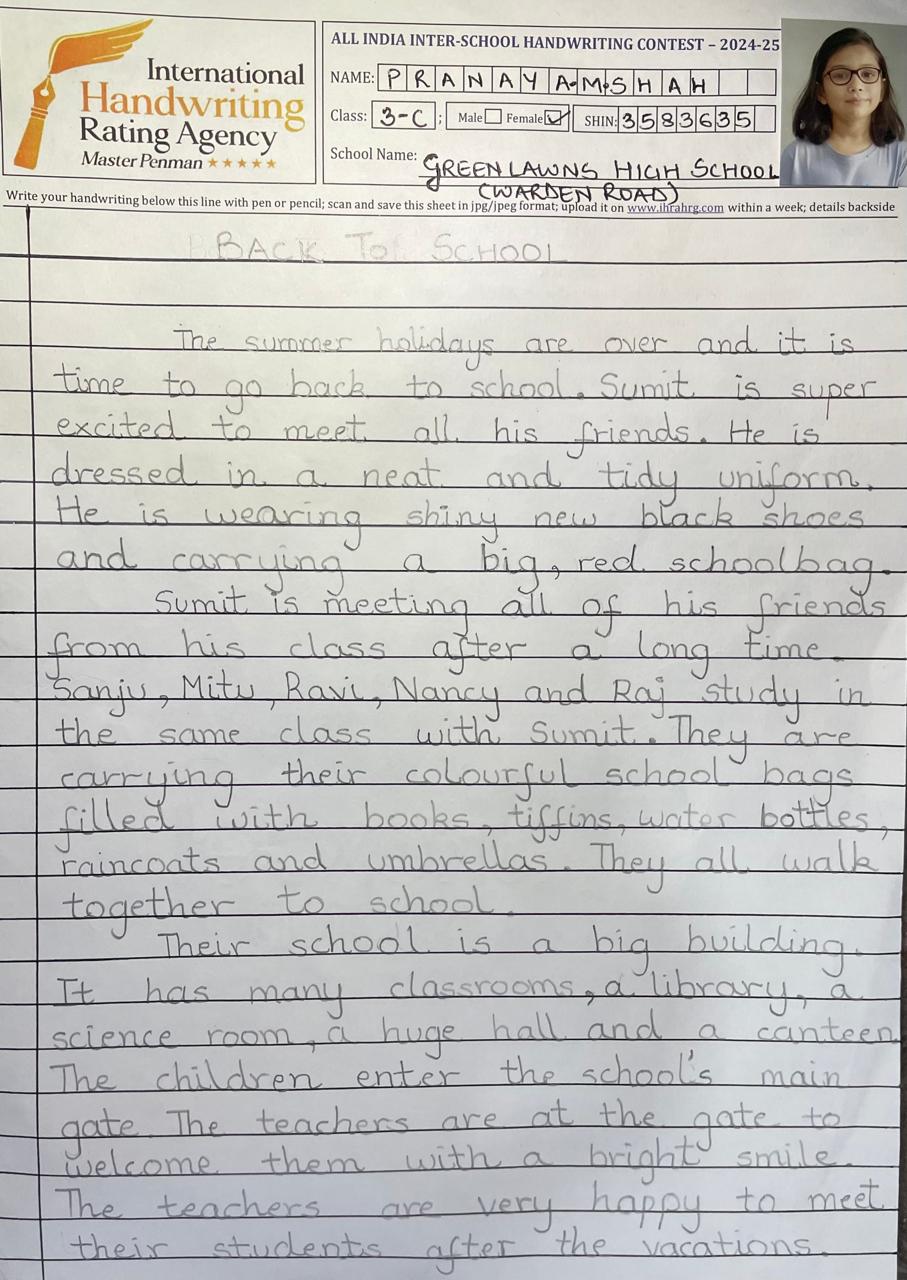 International
Handwriting
Rating Agency
Master Penman
ALL INDIA INTER-SCHOOL HANDWRITING CONTEST – 2024-25
NAME: PRANAYA.M.SHAH
Class: 3-C ; Male Female SHIN: 3583635
School Name: GREENLAWNS HIGH SCHOOL
(WARDEN ROAD)
Write your handwriting below this line with pen or pencil; scan and save this sheet in jpg/jpeg format; upload it on www.ihrahrg.com within a week; details backside
BACK TO SCHOOL
The summer holidays are over and it is
time to go back to school. Sumit is super
excited to meet all his friends. He is
dressed in a neat and tidy uniform.
He is wearing shiny new black shoes
and carrying a big, red schoolbag.
Sumit is meeting all of his friends
from his class after a long time.
Sanju, Mitu, Ravi, Nancy and Raj study in
the same class with Sumit. They are
carrying their colourful school bags
filled with books, tiffins, water bottles,
raincoats and umbrellas. They all walk
together to school.
Their school is a big building.
It has many classrooms, a library, a
science room, a huge hall and a canteen
The children enter the school's main
gate. The teachers are at the gate to
welcome them with a bright smile.
The teachers are very happy to meet
their students after the vacations.